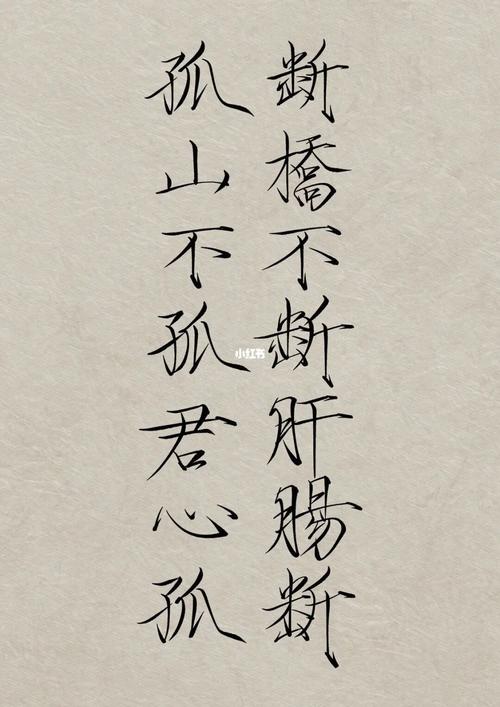 斷橋不斷肝腸斷
孤山不孤君心孤
小红书